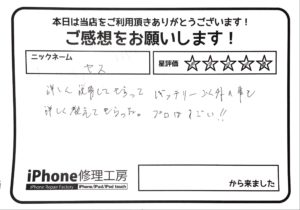 本日は当店をご利用頂きありがとうございます!
ご感想をお願いします!
ニックネーム
ヤス
星評価 ☆☆☆☆☆
詳しく 説明してもらって バッテリー以外の事も
詳しく教えてもらった。 プロはすごい!!
iPhone修理工房
iPhone Repair Factory iPhone/iPad/iPod touch
から来ました